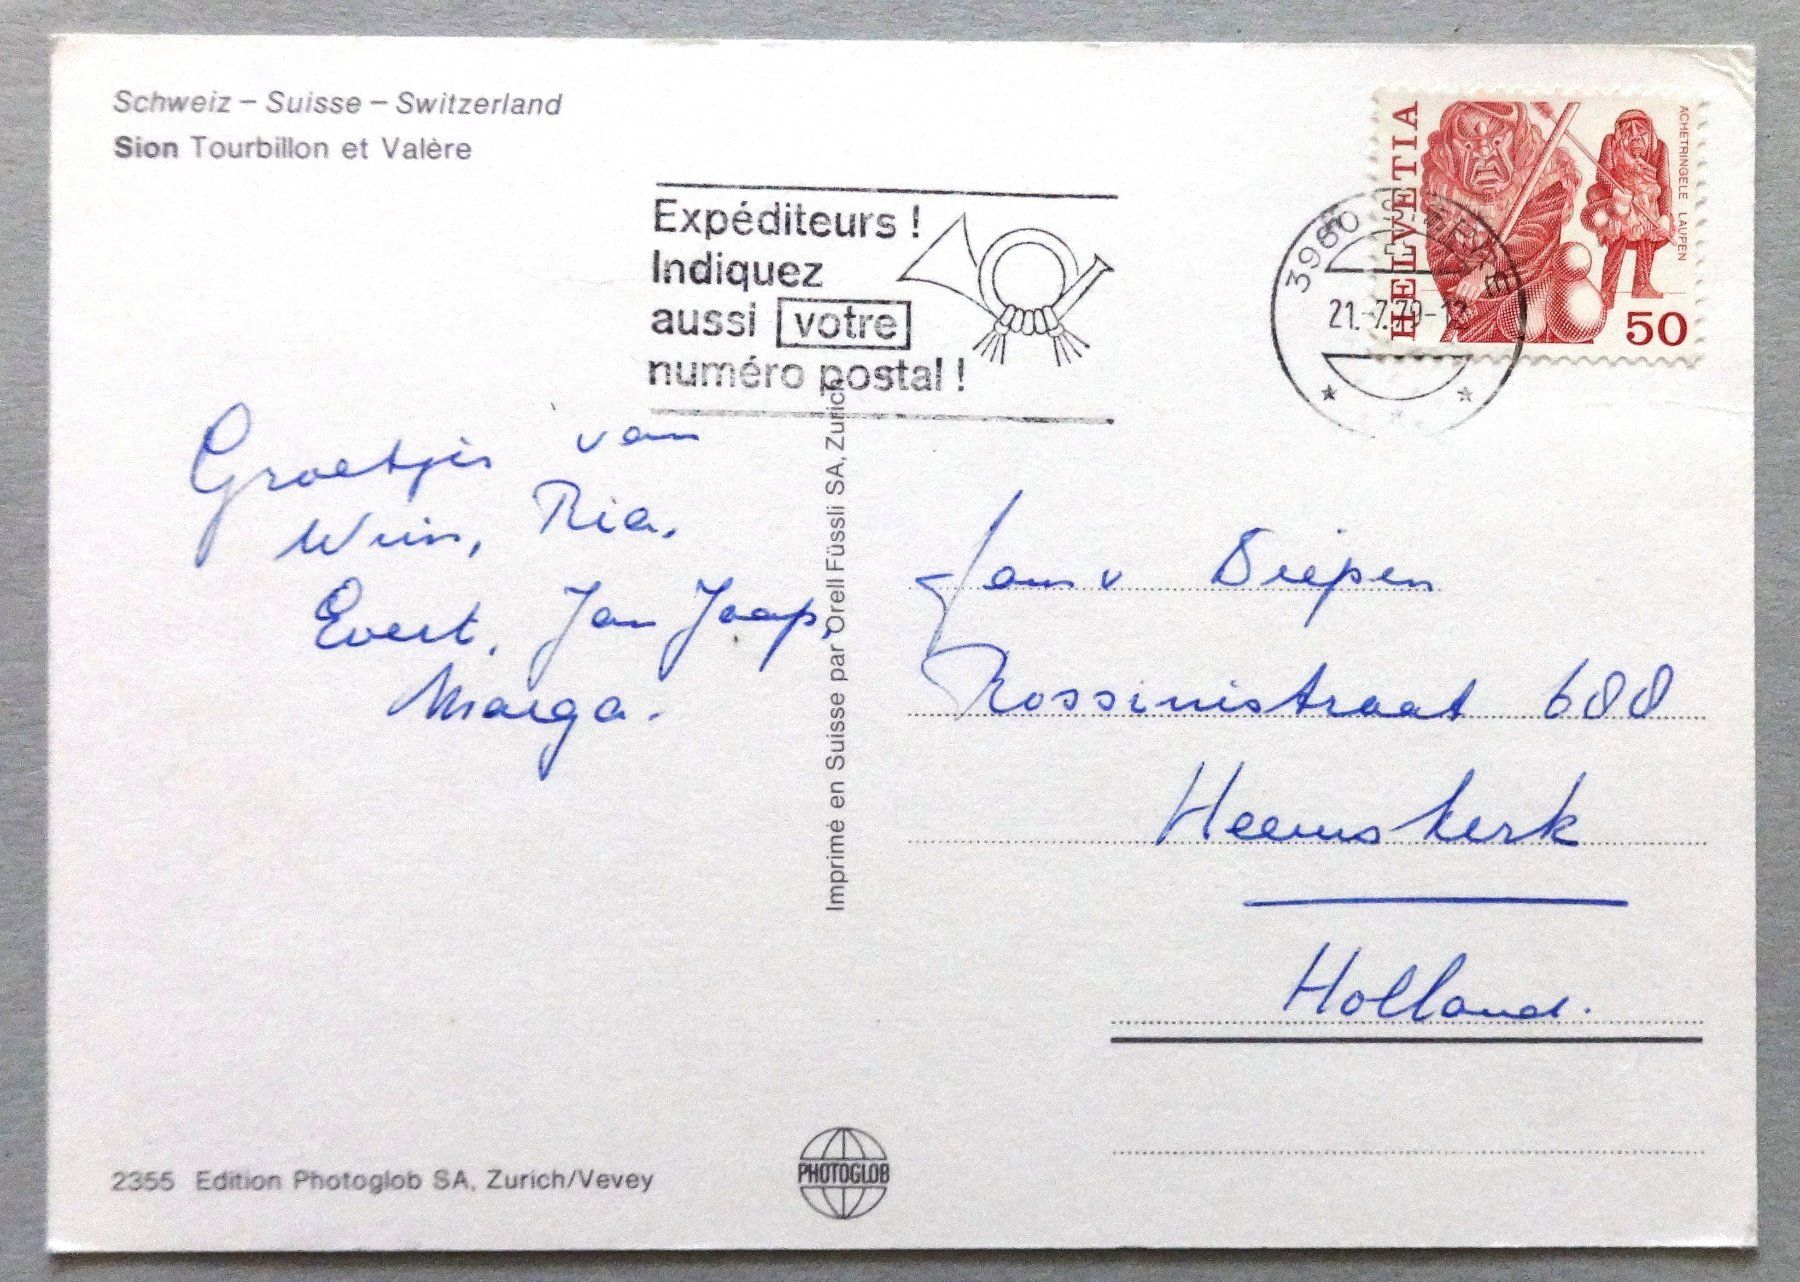 Schweiz – Suisse – Switzerland
Sion Tourbillon et Valère
Expéditeurs !
Indiquez
aussi votre
numéro postal !
HELVETIA
ACHETRINGELE LAUPEN
50
3960 SIERRE
21. 7.79-12
Groetjes van
Wim, Ria,
Evert, Jan Jaap,
Marga.
Imprimé en Suisse par Orell Füssli SA, Zurich
Jan v Diepen
Rossinistraat 688
Heemskerk
Holland.
2355 Edition Photoglob SA, Zurich/Vevey
PHOTOGLOB